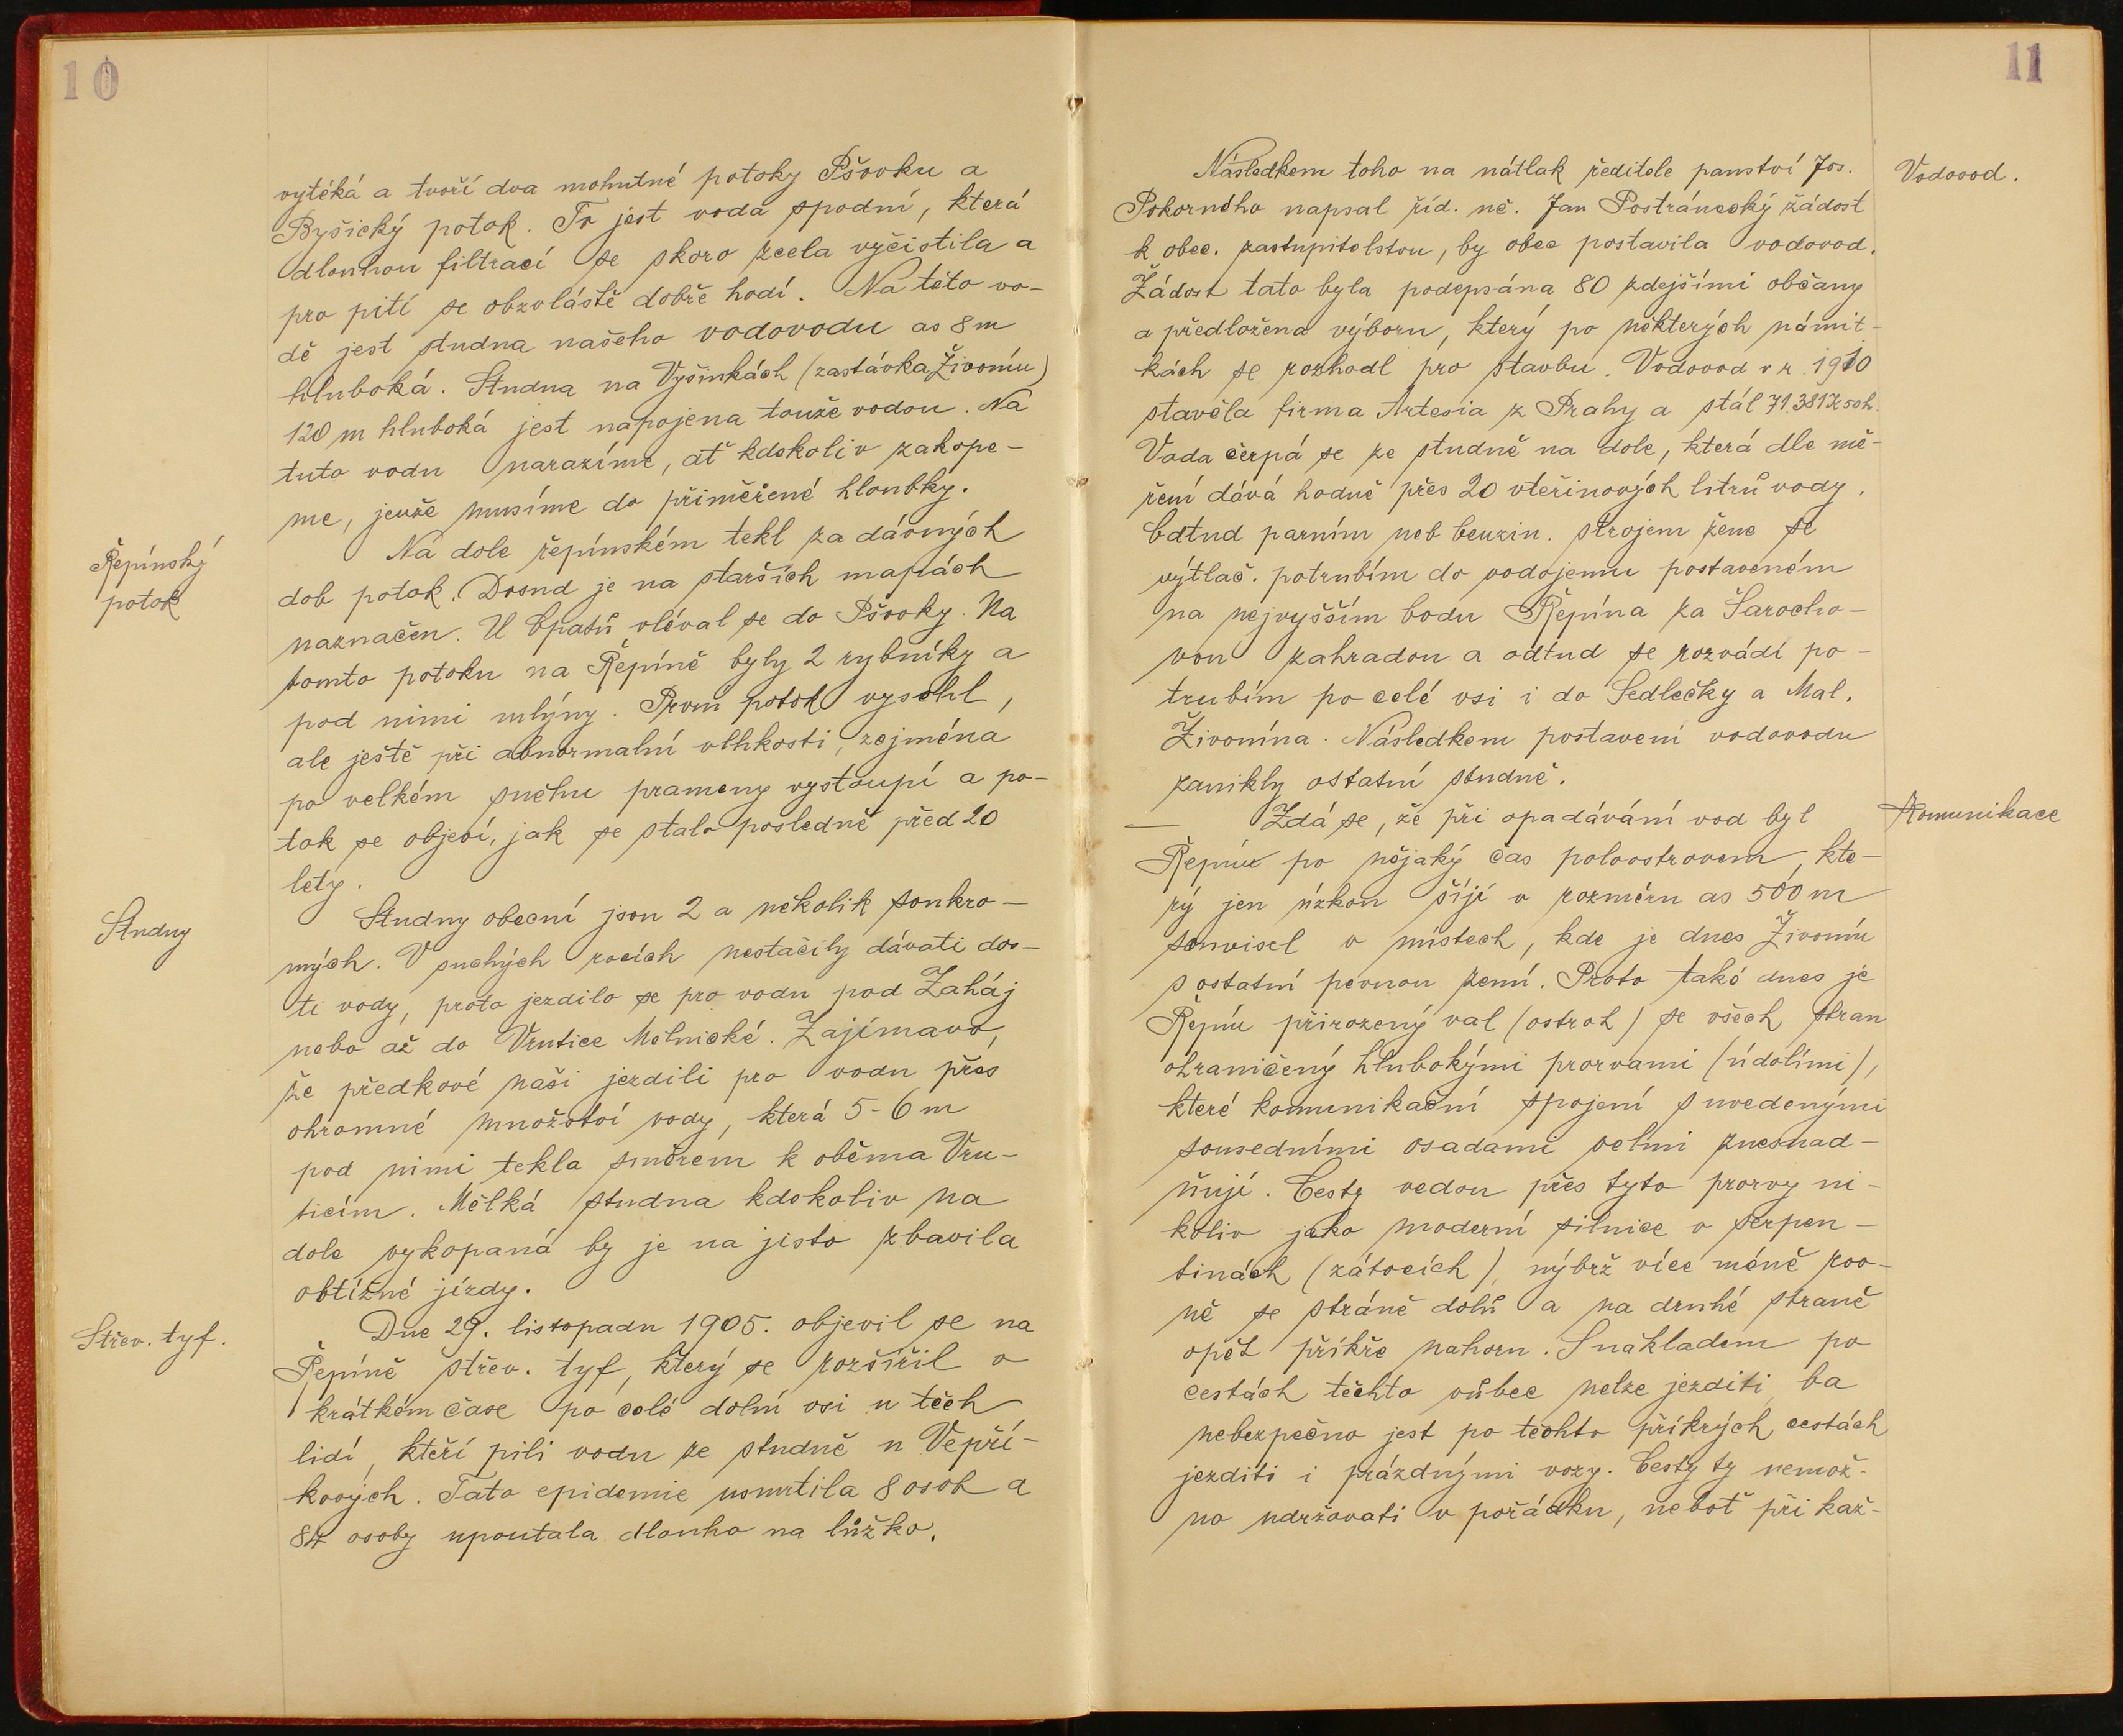 10
vytéká a tvoří dva mohutné potoky Pšovku a
Byšický potok. To jest voda spodní, která
dlouhou filtrací se skoro zcela vyčistila a
pro pití se obzvláště dobře hodí. Na této vo-
dě jest studna našeho vodovodu as 8 m
hluboká. Studna na Vyšinkách (zastávka Živonín)
120 m hluboká jest napojena touže vodou. Na
tuto vodu narazíme, ať kdekoliv zakope-
me, jenže musíme do přiměřené hloubky.
Řepínský
potok
Na dole řepínském tekl za dávných
dob potok. Dosud je na starších mapách
naznačen. U Lpatů vléval se do Pšovky. Na
tomto potoku na Řepíně byly 2 rybníky a
pod nimi mlýny. První potok vyschl,
ale ještě při abnormalní vlhkosti, zejména
po velkém suchu prameny vystoupí a po-
tok se objeví, jak se stalo posledně před 20
lety.
Studny
Studny obecní jsou 2 a několik soukro-
mých. V suchých rocích nestačily dávati dos-
ti vody, proto jezdilo se pro vodu pod Zaháj
nebo až do Vrutice Mělnické. Zajímavo,
že předkové naši jezdili pro vodu přes
ohromné množství vody, která 5-6 m
pod nimi tekla směrem k oběma Vru-
ticím. Mělká studna kdekoliv na
dole vykopaná by je na jisto zbavila
obtížné jízdy.
Střev. tyf.
Dne 29. listopadu 1905. objevil se na
Řepíně střev. tyf, který se rozšířil v
krátkém čase po celé dolní vsi u těch
lidí, kteří pili vodu ze studně u Vepří-
kových. Tato epidemie usmrtila 8 osob a
84 osoby upoutala dlouho na lůžko.
11
Vodovod.
Následkem toho na nátlak ředitele panství Jos.
Pokorného napsal říd. uč. Jan Postránecký žádost
k obec. zastupitelstvu, by obec postavila vodovod.
Žádost tato byla podepsána 80 zdejšími občany
a předložena výboru, který po některých námit-
kách se rozhodl pro stavbu. Vodovod v r. 1910
stavěla firma Artesia z Prahy a stál 71.381 K 50 h.
Voda čerpá se ze studně na dole, která dle mě-
ření dává hodně přes 20 vteřinových litrů vody.
Odtud parním neb benzin. strojem žene se
výtlač. potrubím do vodojemu postaveném
na nejvyšším bodu Řepína za Šarocho-
vou zahradou a odtud se rozvádí po-
trubím po celé vsi i do Sedlečky a Mal.
Živonína. Následkem postavení vodovodu
zanikly ostatní studně.
Komunikace
Zdá se, že při opadávání vod byl
Řepín po nějaký čas poloostrovem, kte-
rý jen úzkou šíjí v rozměru as 500 m
souvisel v místech, kde je dnes Živonín
s ostatní pevnou zemí. Proto také dnes je
Řepín přirozený val (ostroh) se všech stran
ohraničený hlubokými prorvami (údolími),
které komunikační spojení s uvedenými
sousedními osadami velmi znesnad-
ňují. Cesty vedou přes tyto prorvy ni-
koliv jako moderní silnice v serpen-
tinách (zátocích), nýbrž více méně rov-
ně se stráně dolů a na druhé straně
opět příkře nahoru. S nákladem po
cestách těchto vůbec nelze jezditi, ba
nebezpečno jest po těchto příkrých cestách
jezditi i prázdnými vozy. Cesty ty nemož-
no udržovati v pořádku, neboť při kaž-